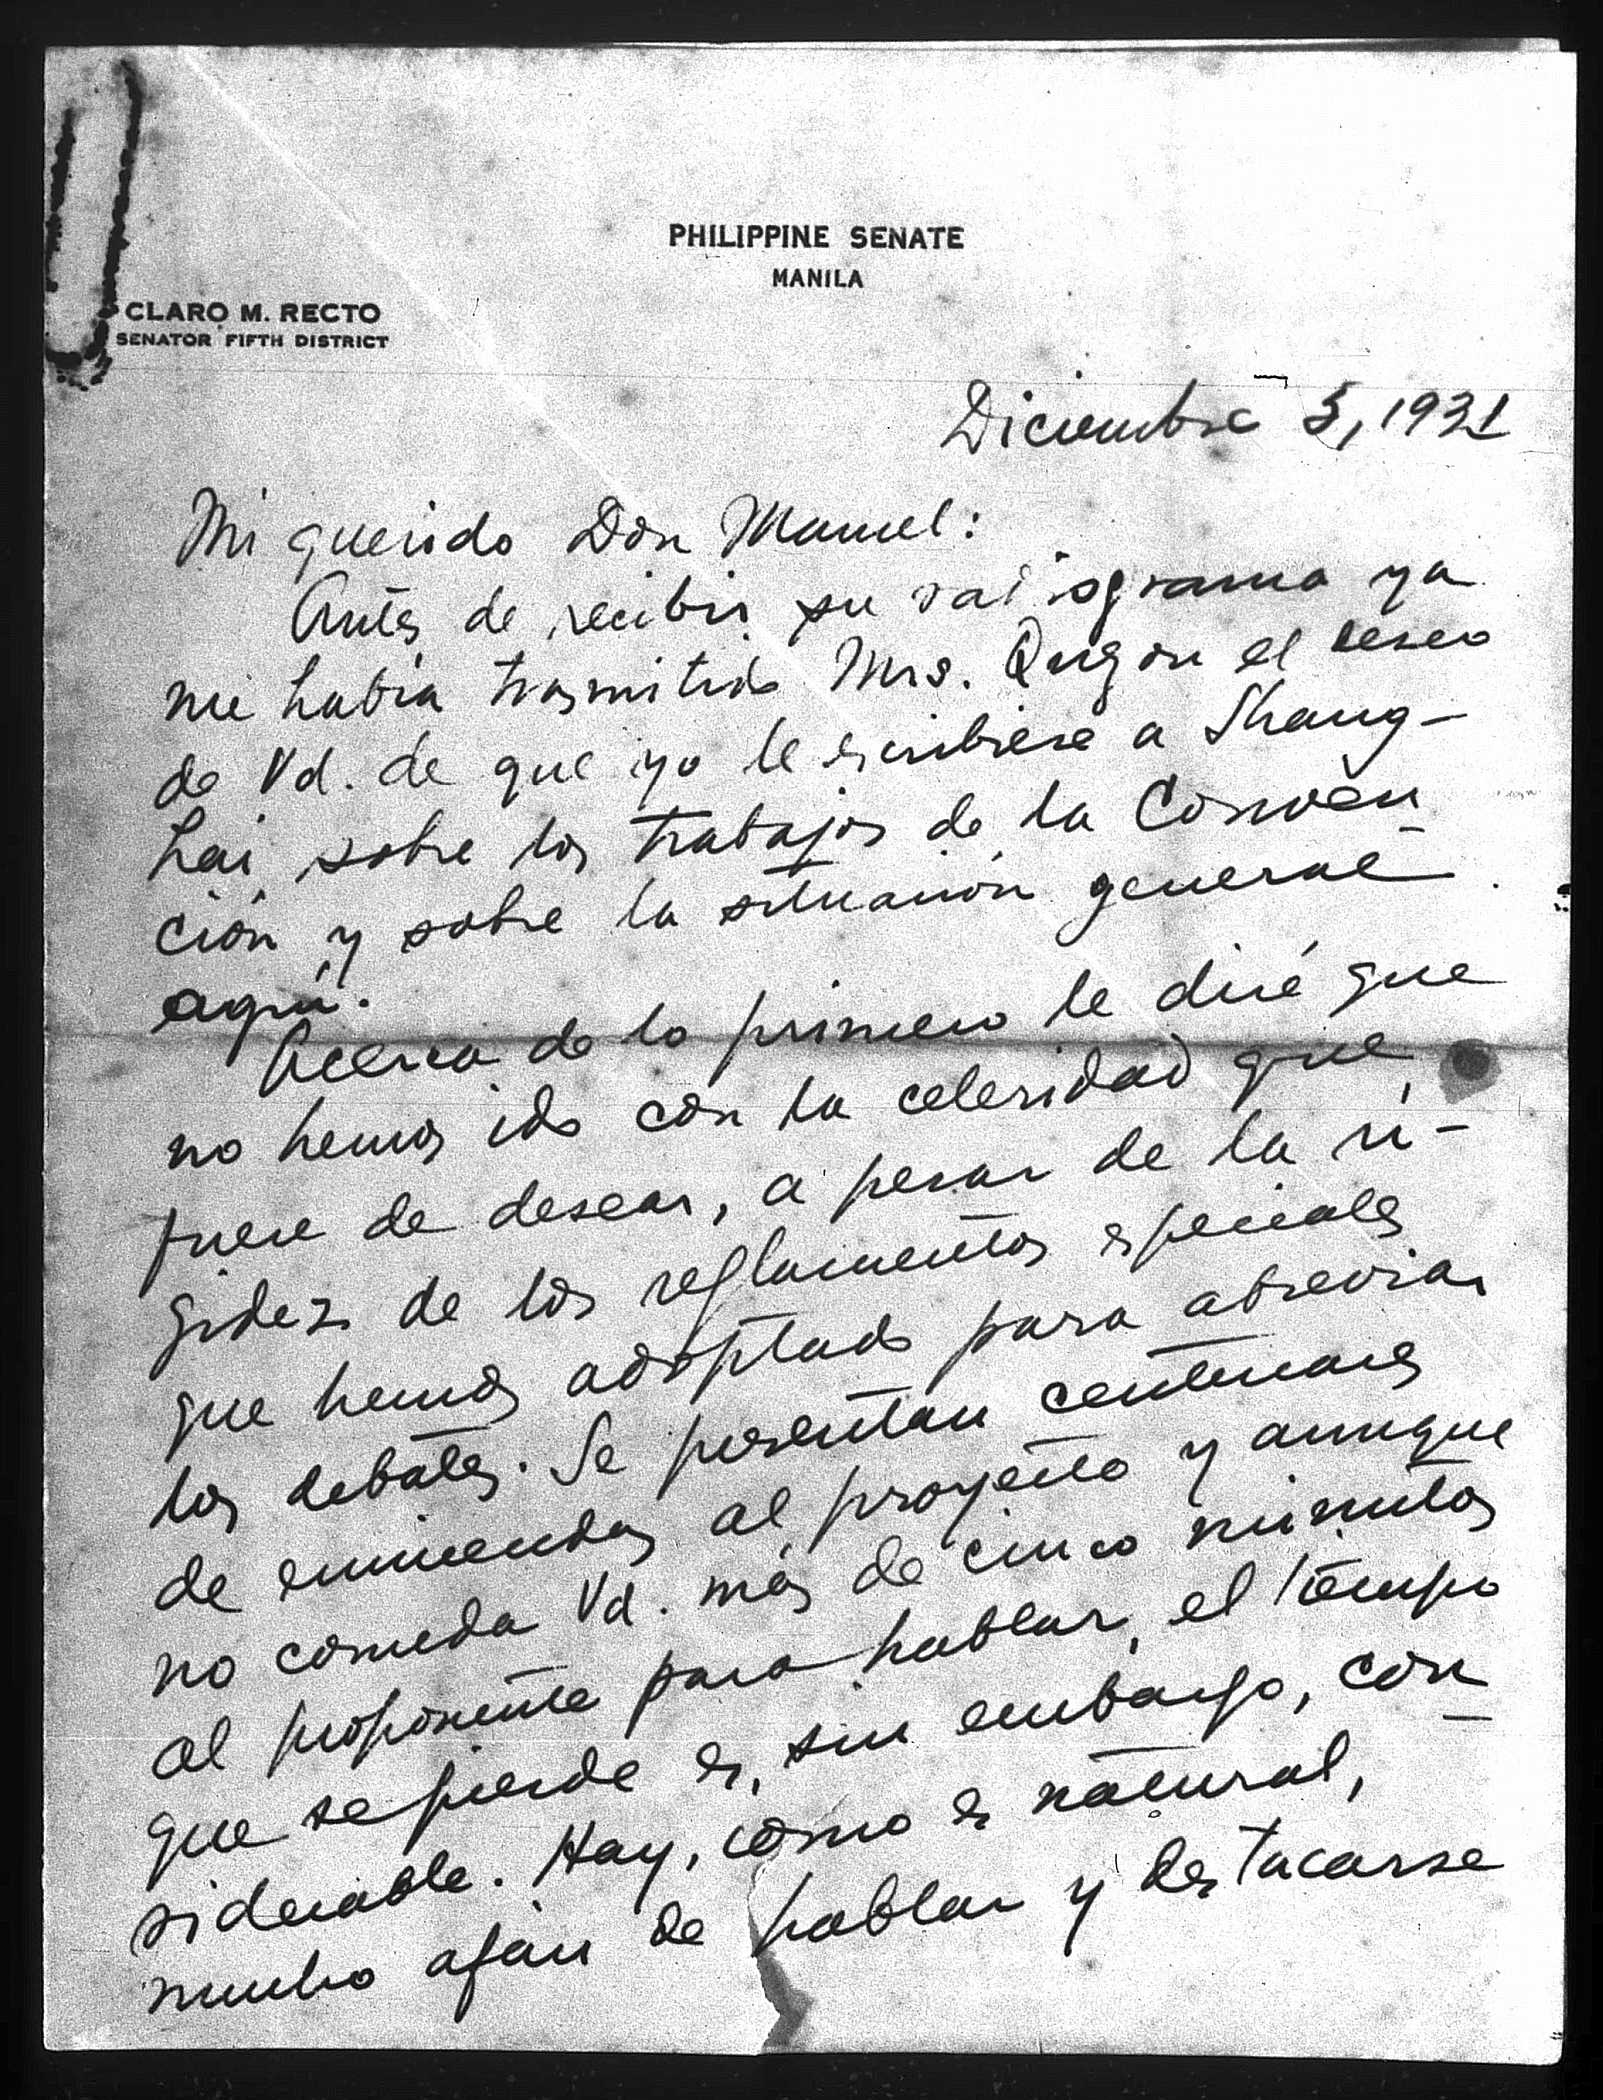 PHILIPPINE SENATE
MANILA
CLARO M. RECTO
SENATOR FIFTH DISTRICT
Diciembre 5, 1931
Mi querido Don Manuel:
Antes de recibir su radiograma ya
me había trasmitido Mrs. Quezon el deseo
de Vd. de que yo le escribiese a Shang-
hai sobre los trabajos de la Conven-
ción y sobre la situación general
aquí.
Acerca de lo primero le diré que
no hemos ido con la celeridad que
fuere de desear, a pesar de la ri-
gidez de los reglamentos especiales
que hemos adoptado para abreviar
los debates. Se presentan centenares
de enmiendas al proyecto y aunque
no conceda Vd. más de cinco minutos
al proponente para hablar, el tiempo
que se pierde es, sin embargo, con-
siderable. Hay, como es natural,
mucho afán de hablar y destacarse